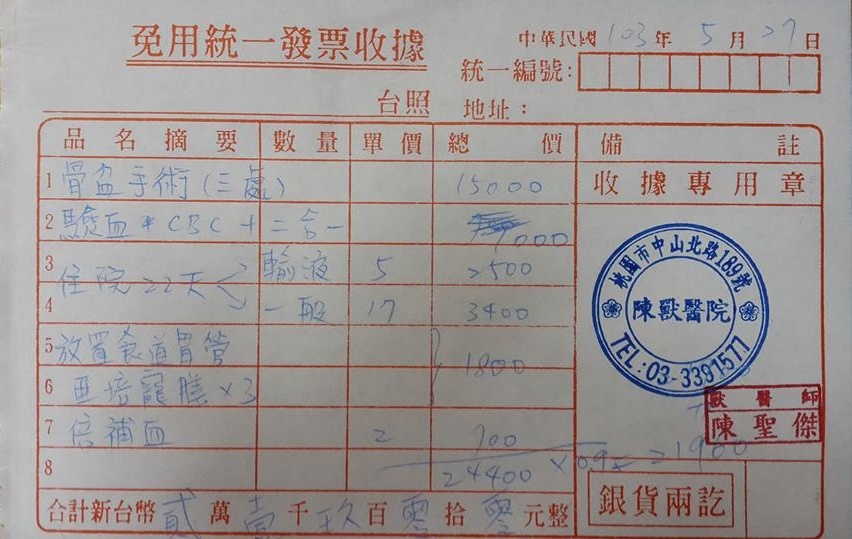 免用統一發票收據
中華民國 103 年 5 月 27 日
統一編號：
台照 地址：
品名摘要 數量 單價 總價 備註
1 骨盆手術(三處) 15000 收據專用章
2 驗血*CBC+二合一 1000
3 住院22天 輸液 5 2500
4 一般 17 3400
5 放置食道胃管 1800
6 亞培寵膳×3
7 倍補血 2 700
8 24400×0.9=21900
合計新台幣 貳 萬 壹 千 玖 百 零 拾 零 元整
銀貨兩訖
桃園市中山北路189號
陳獸醫院
TEL:03-3391577
獸醫師
陳聖傑